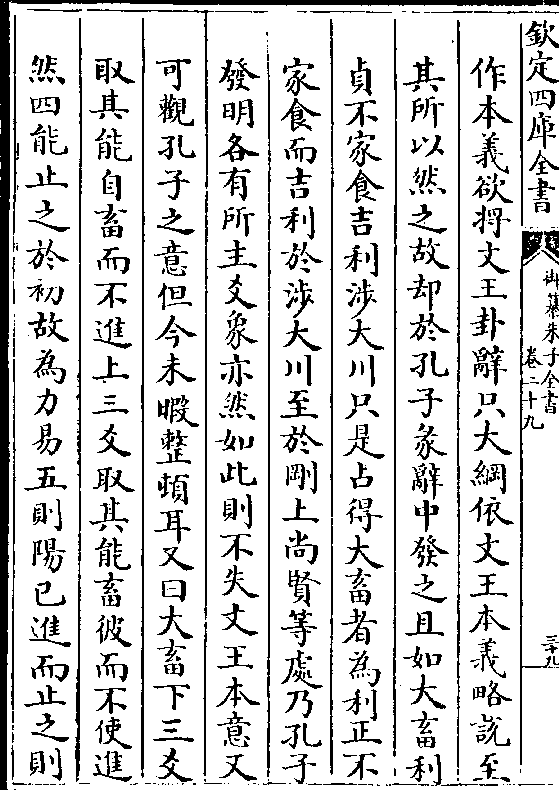 欽定四庫全書
御纂朱子全書
卷二十九
三十九
作本義欲將文王卦辭只大綱依文王本義略說至
其所以然之故却於孔子彖辭中發之且如大畜利
貞不家食吉利涉大川只是占得大畜者為利正不
家食而吉利於涉大川至於剛上尚賢等處乃孔子
發明各有所主爻象亦然如此則不失文王本意又
可觀孔子之意但今未暇整頓耳又曰大畜下三爻
取其能自畜而不進上三爻取其能畜彼而不使進
然四能止之於初故為力易五則陽已進而止之則